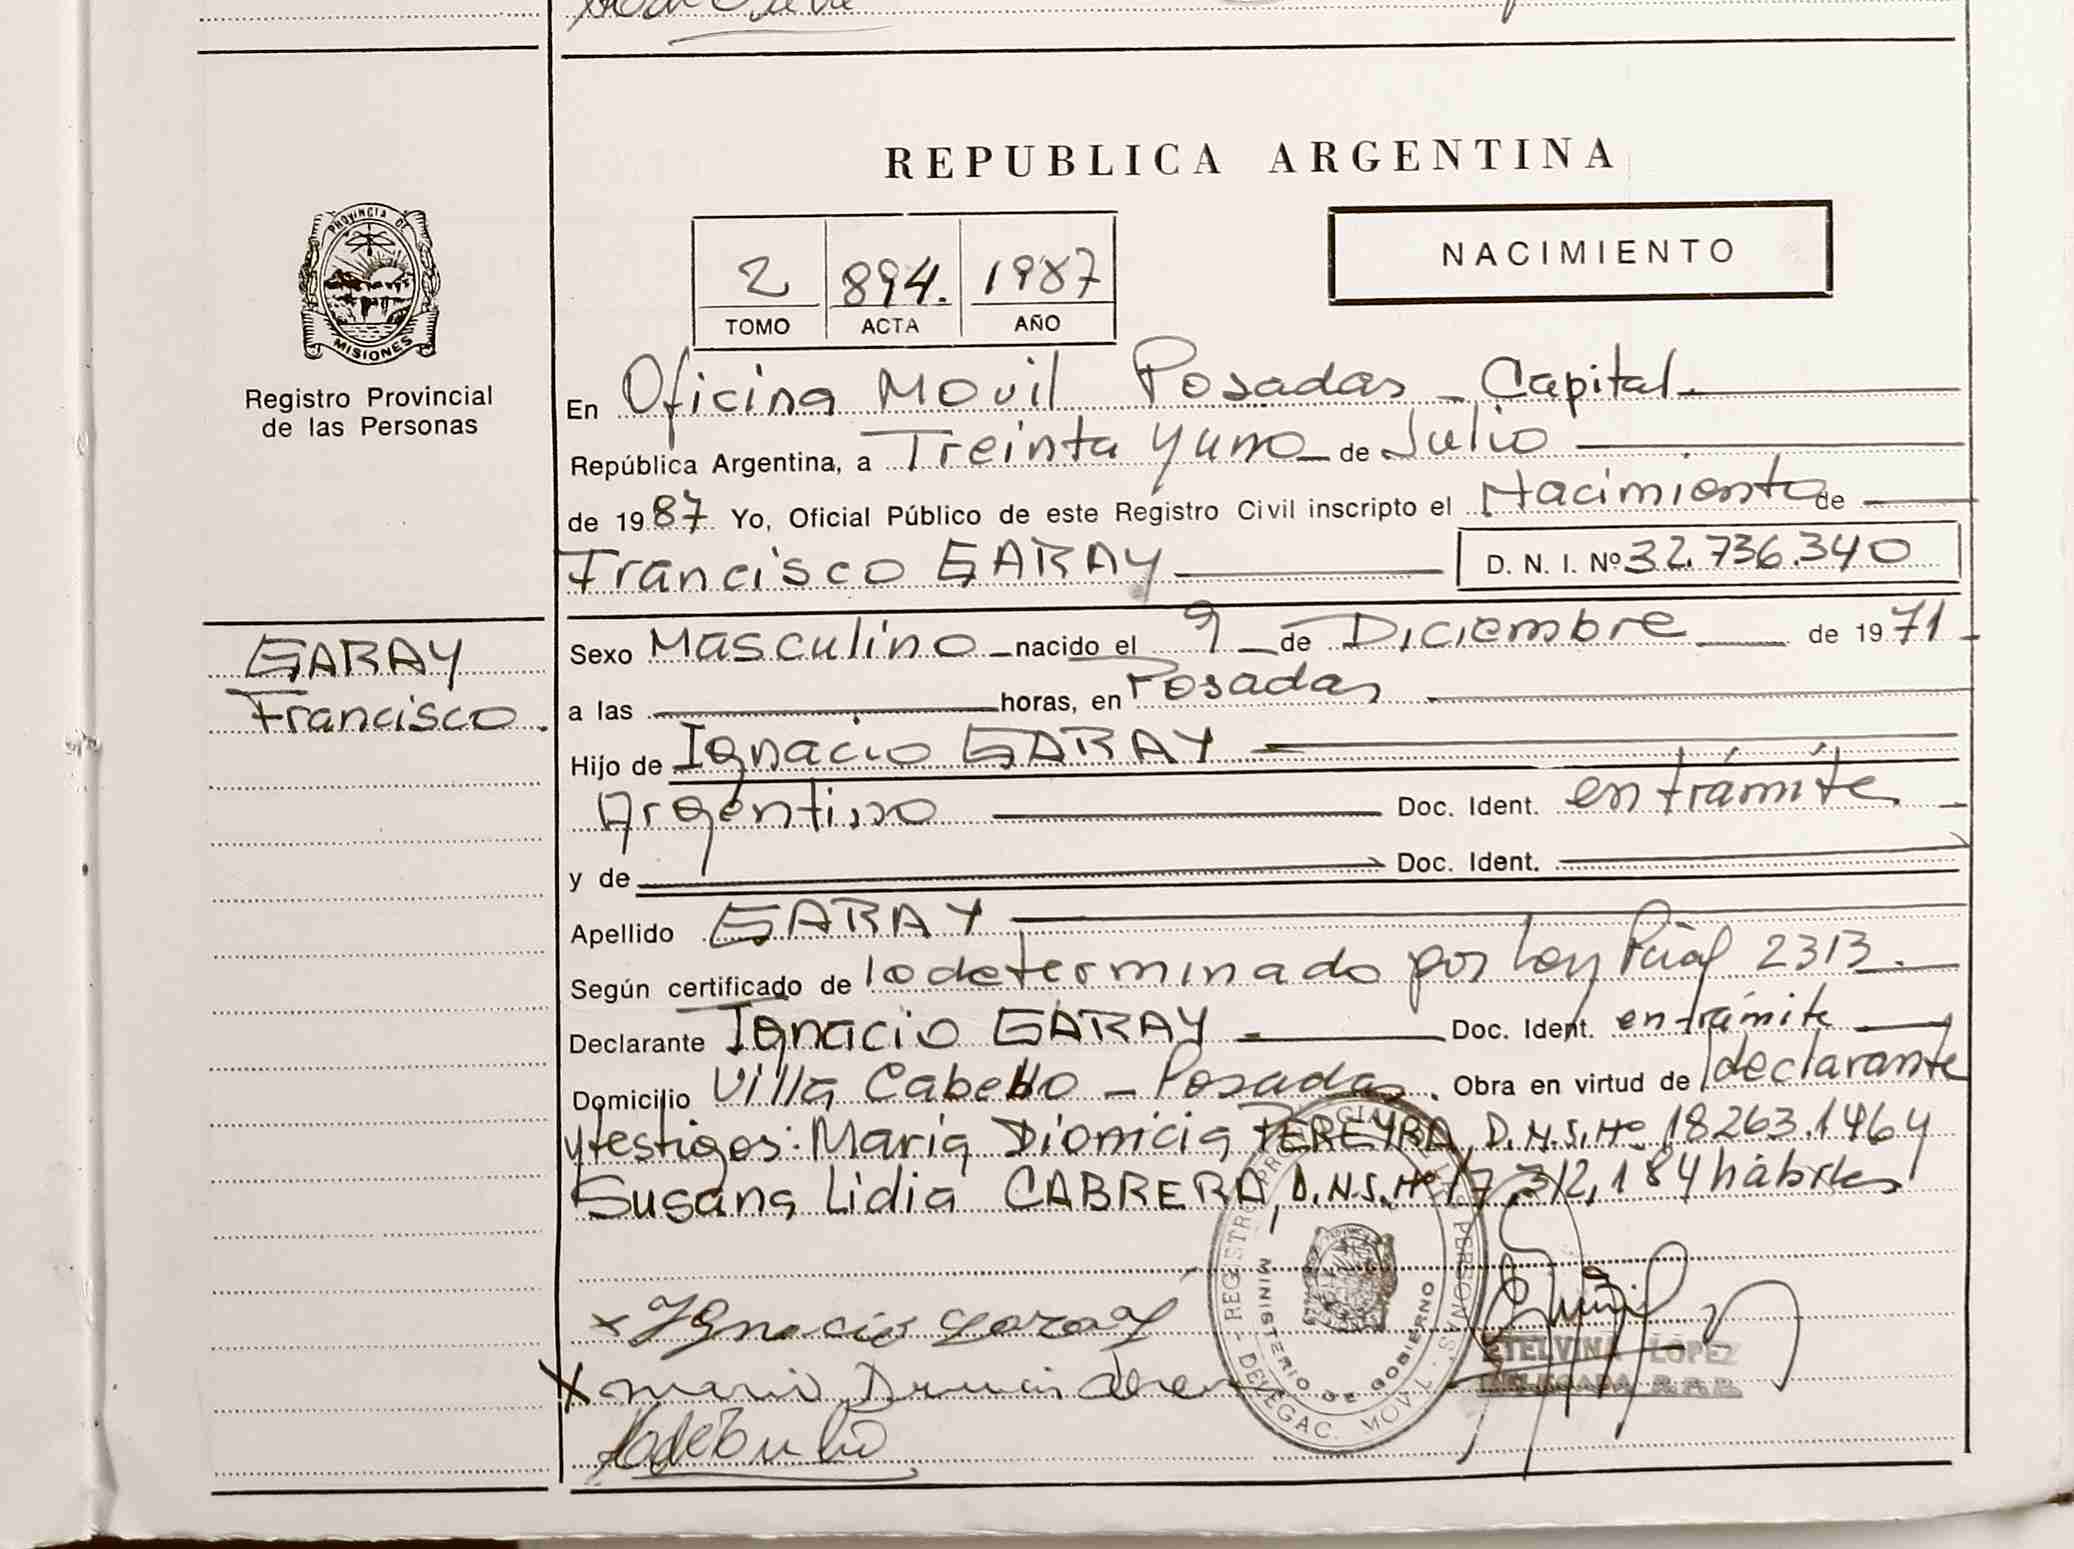 REPUBLICA ARGENTINA
NACIMIENTO
2 894. 1987
TOMO ACTA AÑO
PROVINCIA DE
MISIONES
Registro Provincial
de las Personas
En Oficina Movil Posadas - Capital
República Argentina, a Treinta y uno de Julio
de 1987 Yo, Oficial Público de este Registro Civil inscripto el Nacimiento de
Francisco GARAY D. N. I. Nº 32.736.340
GARAY
Francisco.
Sexo Masculino nacido el 9 de Diciembre de 1971
a las horas, en Posadas
Hijo de Ignacio GARAY
Argentino Doc. Ident. en trámite
y de Doc. Ident.
Apellido GARAY
Según certificado de lo determinado por Ley 2313.
Declarante Ignacio GARAY Doc. Ident. en trámite
Domicilio Villa Cabello - Posadas. Obra en virtud de declarante
y testigos: Maria Dionicia PEREYRA D.N.I. Nº 18263.146 y
Susana Lidia CABRERA, D.N.I. Nº 17.312.184 hábiles
REGISTRO PROVINCIAL DE LAS PERSONAS - DELEGAC. MOVIL
MINISTERIO DE GOBIERNO
x Ignacio garay
ETELVINA LÓPEZ
DELEGADA R.P.P.
x